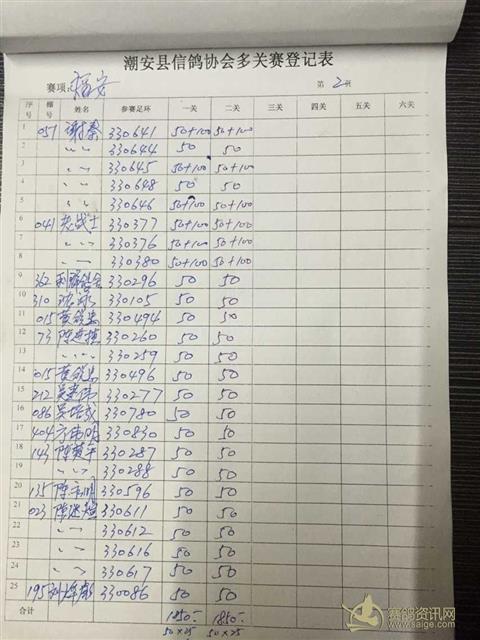 潮安县信鸽协会多关赛登记表
赛项: 福安 第 2 页
序号 棚号 姓名 参赛足环 一关 二关 三关 四关 五关 六关
1 051 谢泰 330641 50+100 50+100
2 〃 〃 330644 50 50
3 〃 〃 330645 50+100 50+100
4 〃 〃 330648 50 50
5 〃 〃 330646 50+100 50+100
6 041 老战士 330377 50+100 50+100
7 〃 〃 330376 50+100 50+100
8 〃 〃 330380 50+100 50+100
9 362 330296 50 50
10 310 330105 50 50
11 015 黄 330494 50 50
12 73 陈 330260 50 50
13 〃 〃 330259 50 50
14 015 黄 330496 50 50
15 212 吴 330277 50 50
16 086 吴 330780 50 50
17 404 330830 50 50
18 143 陈 330287 50 50
19 〃 〃 330288 50 50
20 135 陈 330596 50 50
21 023 陈 330611 50 50
22 〃 〃 330612 50 50
23 〃 〃 330616 50 50
24 〃 〃 330617 50 50
25 195 330086 50 50
合计 1850- 1850-
50×25 50×25
赛鸽资讯网
www.saige.com